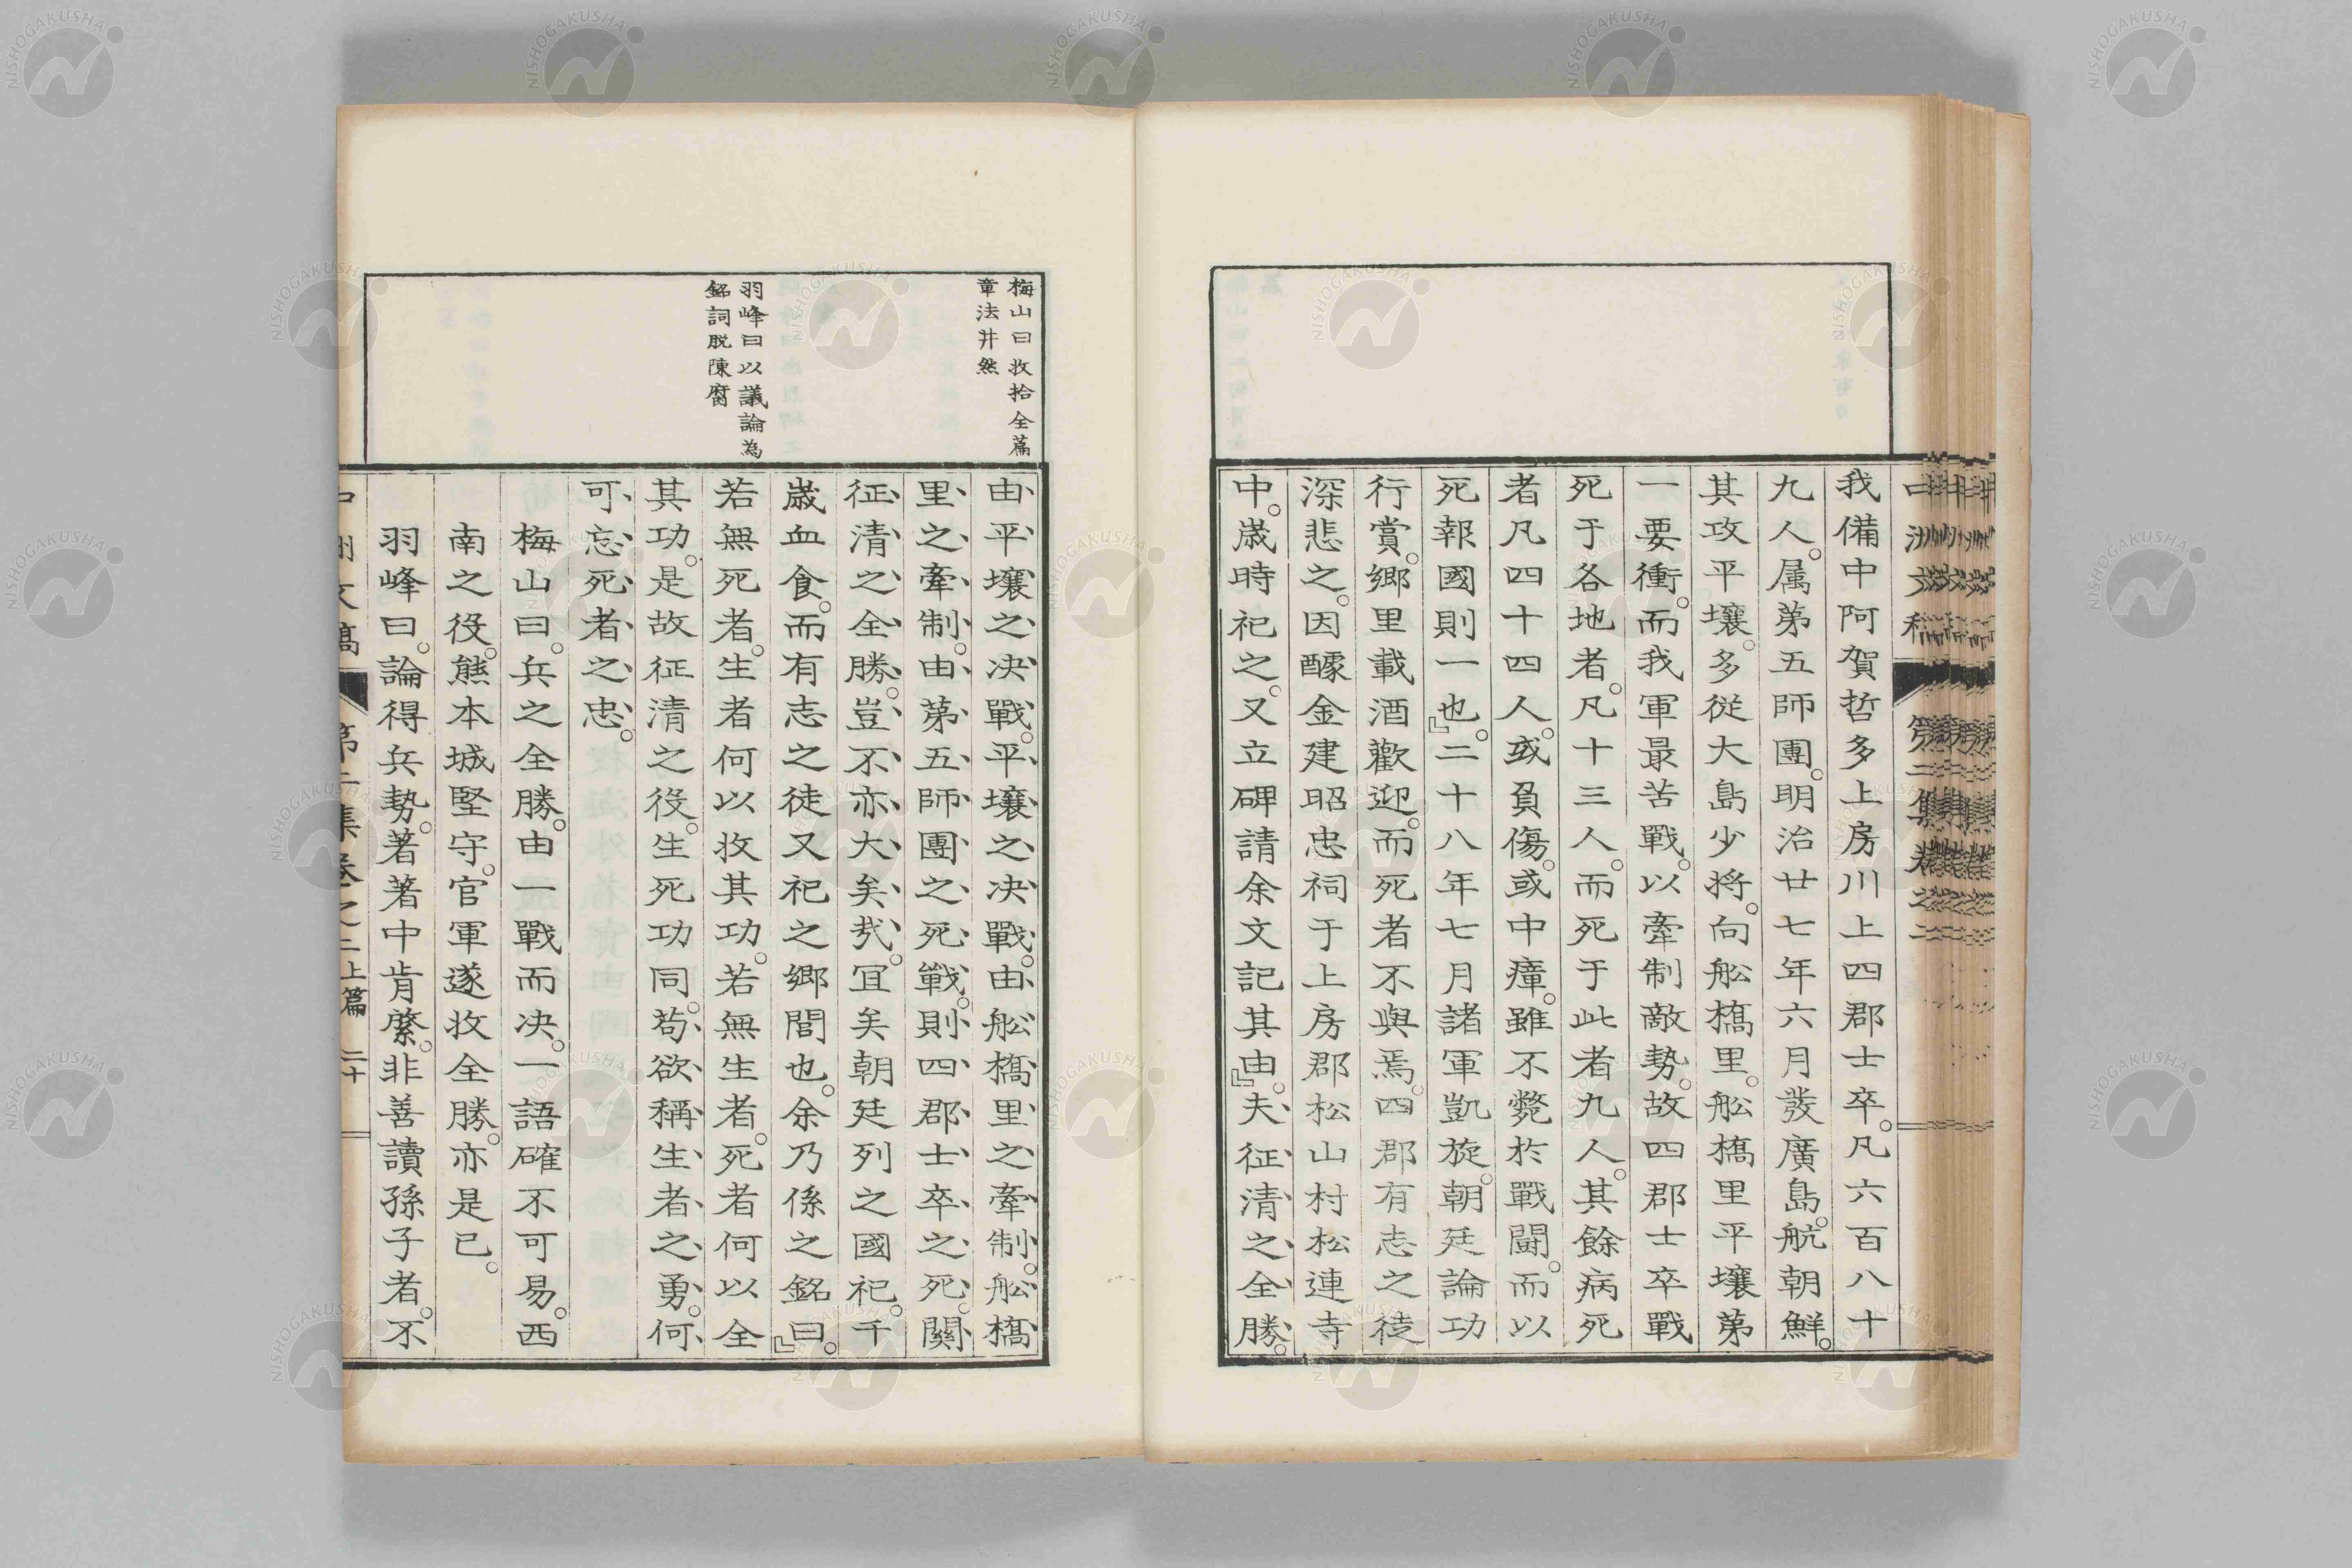 我備中阿賀哲多上房川上四郡士卒。凡六百八十
九人。属苐五師團。明治廿七年六月發廣島。航朝鮮。
其攻平壤。多從大島少將。向舩橋里。舩橋里平壤苐
一要衝。而我軍最苦戰。以牽制敵勢。故四郡士卒戰
死于各地者。凡十三人。而死于此者九人。其餘病死
者凡四十四人。或負傷。或中瘴。雖不斃於戰鬪。而以
死報國則一也。』二十八年七月諸軍凱旋。朝廷論功
行賞。鄉里載酒歡迎。而死者不與焉。四郡有志之徒
深悲之。因醵金建昭忠祠于上房郡松山村松連寺
中。歲時祀之。又立碑請余文記其由。』夫征清之全勝。
梅山曰收拾全篇
章法井然
羽峰曰以議論為
銘詞脫陳腐
由平壤之决戰。平壤之决戰。由舩橋里之牽制。舩橋
里之牽制。由苐五師團之死戰。則四郡士卒之死。關
征清之全勝。豈不亦大矣哉。宜矣朝廷列之國祀。千
歲血食。而有志之徒又祀之鄉閭也。余乃係之銘曰。』
若無死者。生者何以收其功。若無生者。死者何以全
其功。是故征清之役。生死功同。苟欲稱生者之勇。何
可忘死者之忠。
梅山曰。兵之全勝。由一戰而决。一語確不可易。西
南之役。熊本城堅守。官軍遂收全勝。亦是已。
羽峰曰。論得兵勢。著著中肯綮。非善讀孫子者。不
第二集卷之二上篇 二十
NISHOGAKUSHA